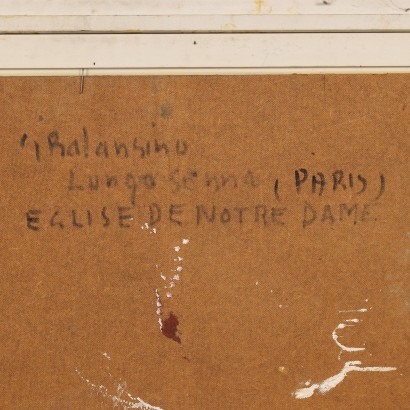 Lungo Senna (PARIS)
EGLISE DE NOTRE DAME